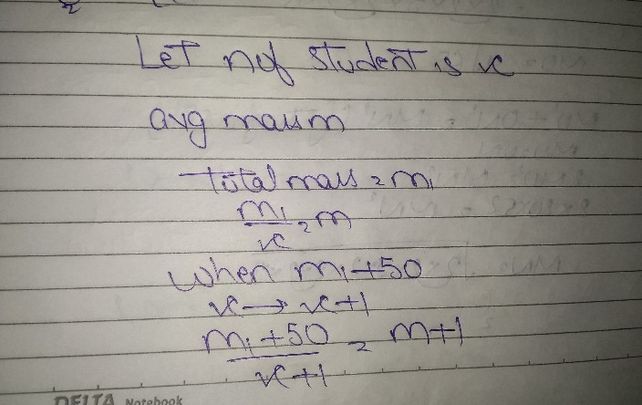 2
Let nof student is x
avg mass m
total mass = m₁
m₁/x = m
when m₁+50
x → x+1
m₁+50/x+1 = m+1
DELTA Notebook